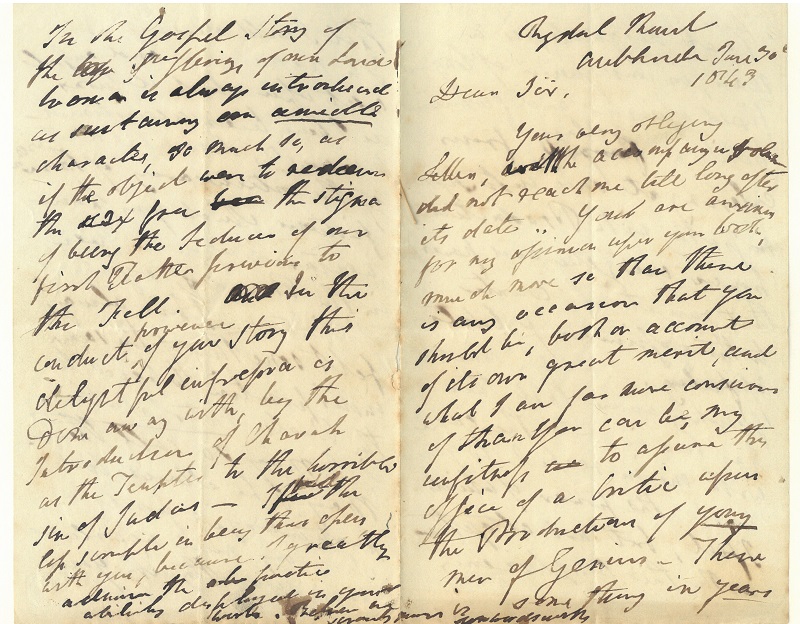 In the Gospel Story of
the sufferings of our Lord
Woman is always introduced
as sustaining an amiable
character, so much so, as
if the object were to redeem
the sex from the stigma
of being the Seducer of our
first Father previous to
the Fall. In the
conduct, however of your Story this
delightful impression is
Done away with, by the
Introduction of
as the Tempter to the horrible
sin of Judas — I the
less scruple in being thus open
with you, because I greatly
admire the
abilities displayed in your
work. Believe me
Rydal Mount
Ambleside June 30
1843
Dear Sir,
Your very obliging
Letter, with the accompanying Volume
did not reach me till long after
its date. You are anxious
for my opinion upon your work,
much more so than there
is any occasion that you
should be, both on account
of its own great merit, and
what I am far more conscious
of than you can be, my
unfitness to assume the
office of a Critic upon
the Productions of young
men of Genius — There
is some thing in years
Wordsworth